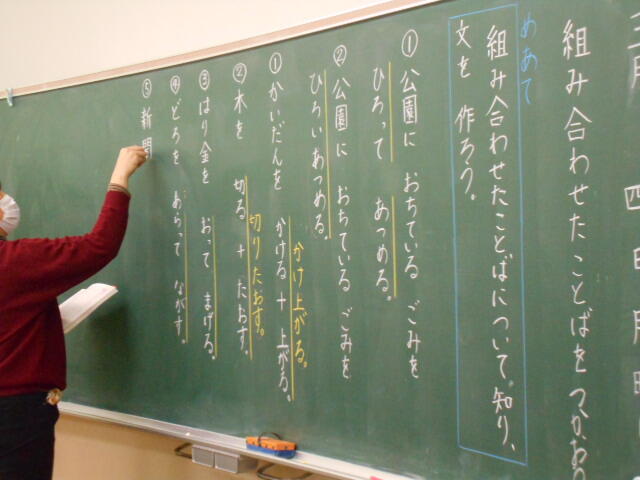 二月四日月曜
組み合わせたことばをつかおう
めあて
組み合わせたことばについて知り、
文を作ろう。
①公園に おちている ごみを
ひろって あつめる。
②公園に おちている ごみを
ひろいあつめる。
①かいだんを かける + 上がる。
かけ上がる。
②木を 切る + たおす。
切りたおす。
③はり金を おって まげる。
④どろを あらって ながす。
⑤新聞